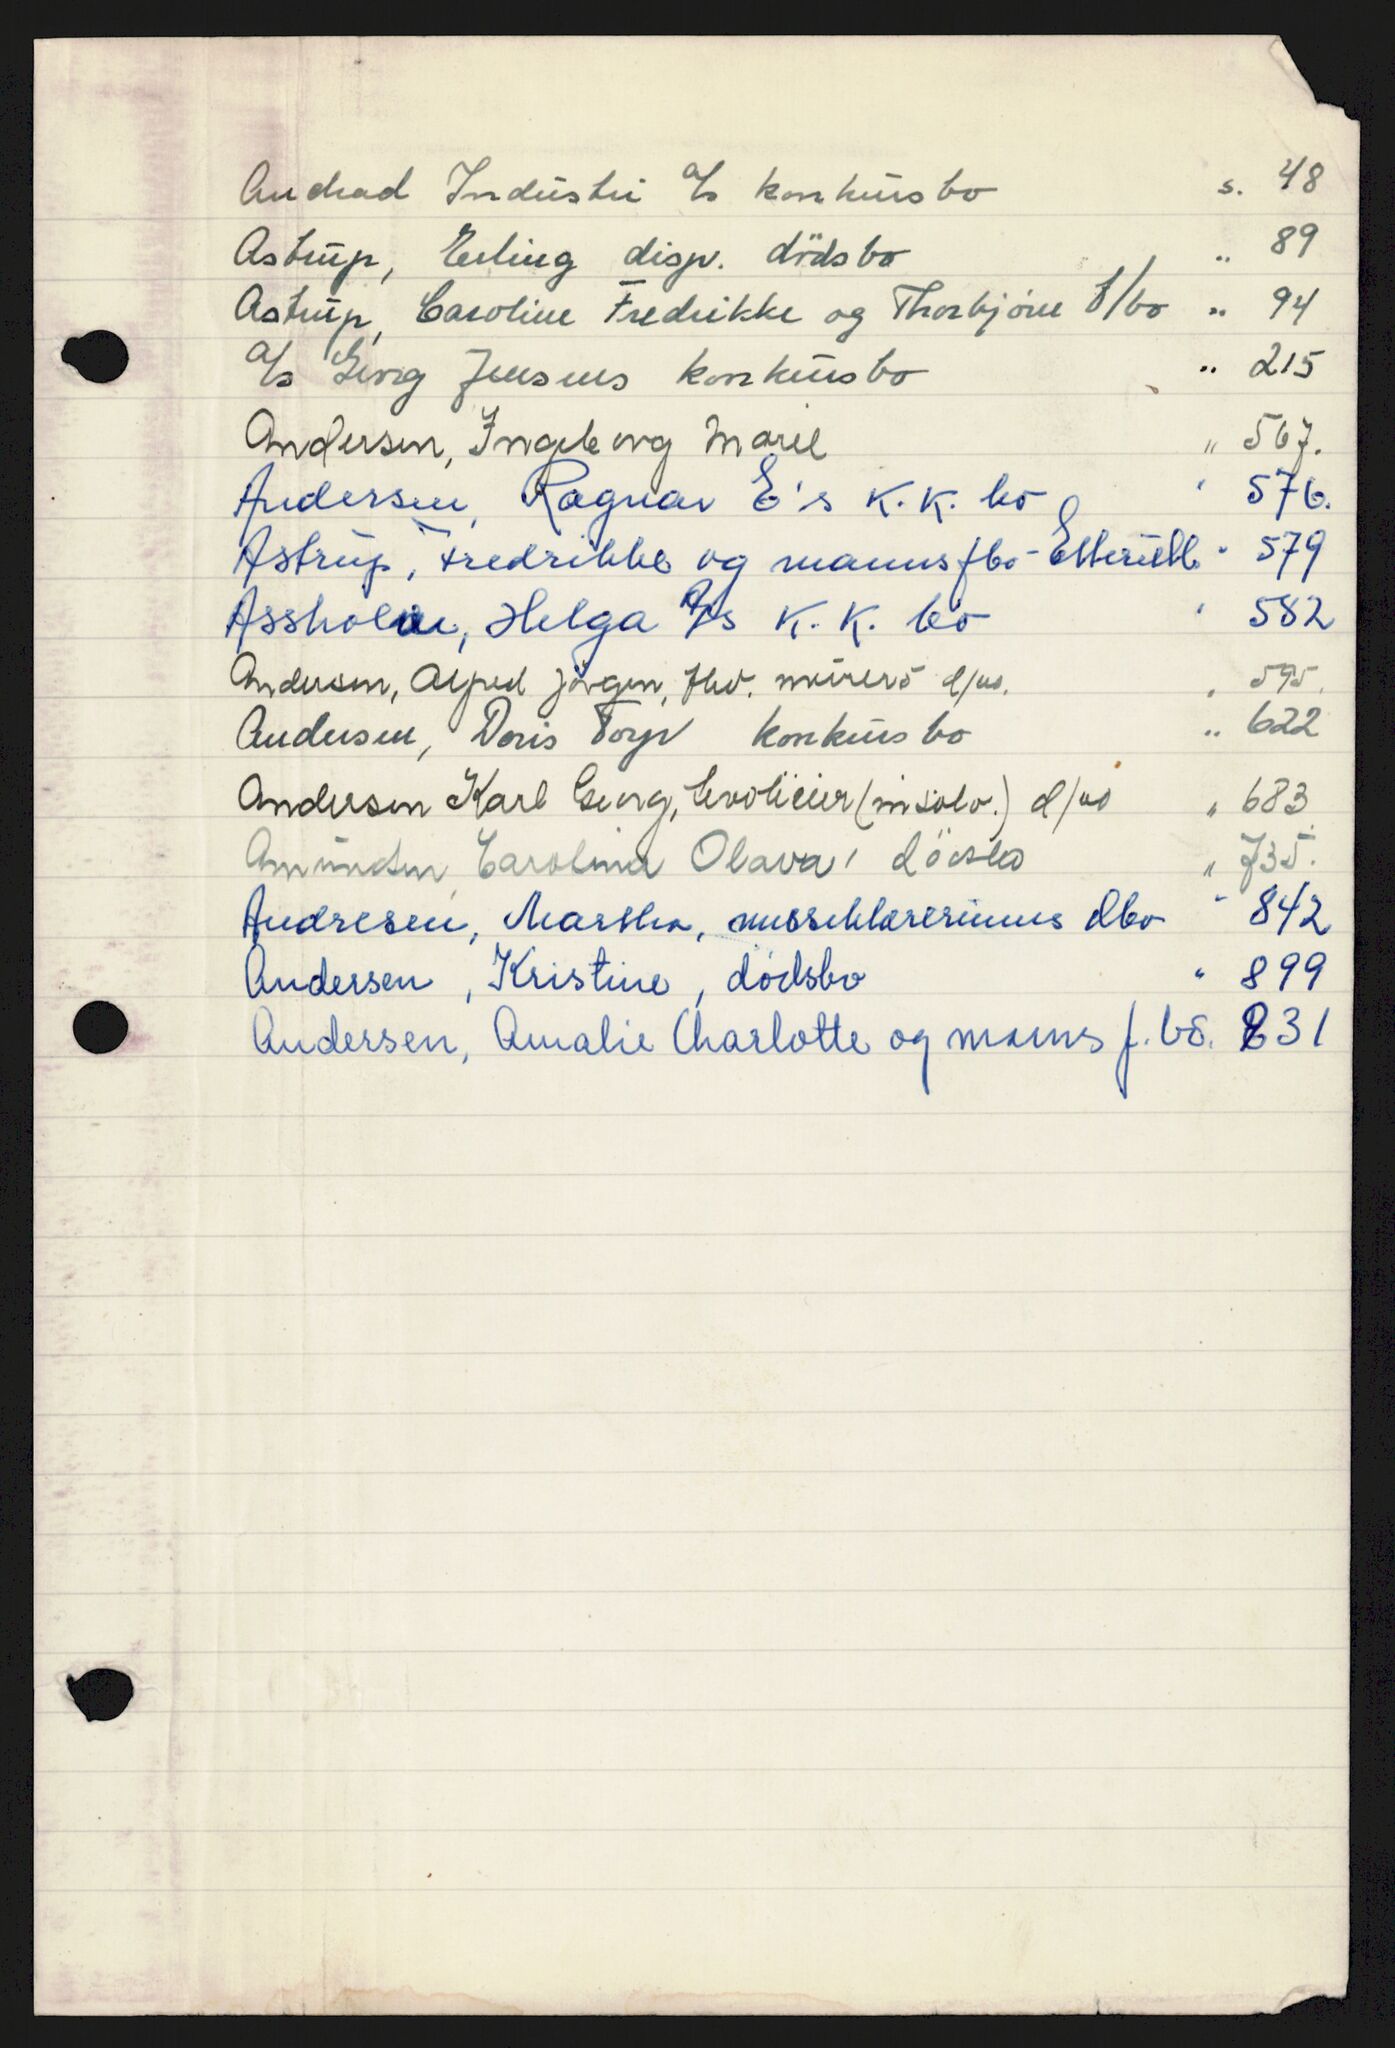 Andrad Industri A/s konkursbo s. 48
Astrup, Erling disp. dödsbo " 89
Astrup, Caroline Fredrikke og Thorbjörn f/bo " 94
A/s Georg Jensens konkursbo " 215
Andersen, Ingeborg Marie " 567.
Andersen, Ragnar E's K.K. bo " 576.
Astrup, Fredrikke og manns fbo - Etterutl. " 579
Assholm, Helga A/s K.K. bo " 582
Andersen, Alfred Jörgen, fhv. murers d/bo. " 595.
Andersen, Doris Torp konkursbo " 622
Andersen Karl Georg, (insolv.) d/bo " 683
Amundsen, Carolina Olava, dödsbo " 735.
Andresen, Martha, dbo " 842
Andersen, Kristine, dödsbo " 899
Andersen, Amalie Charlotte og manns f. bo. 831